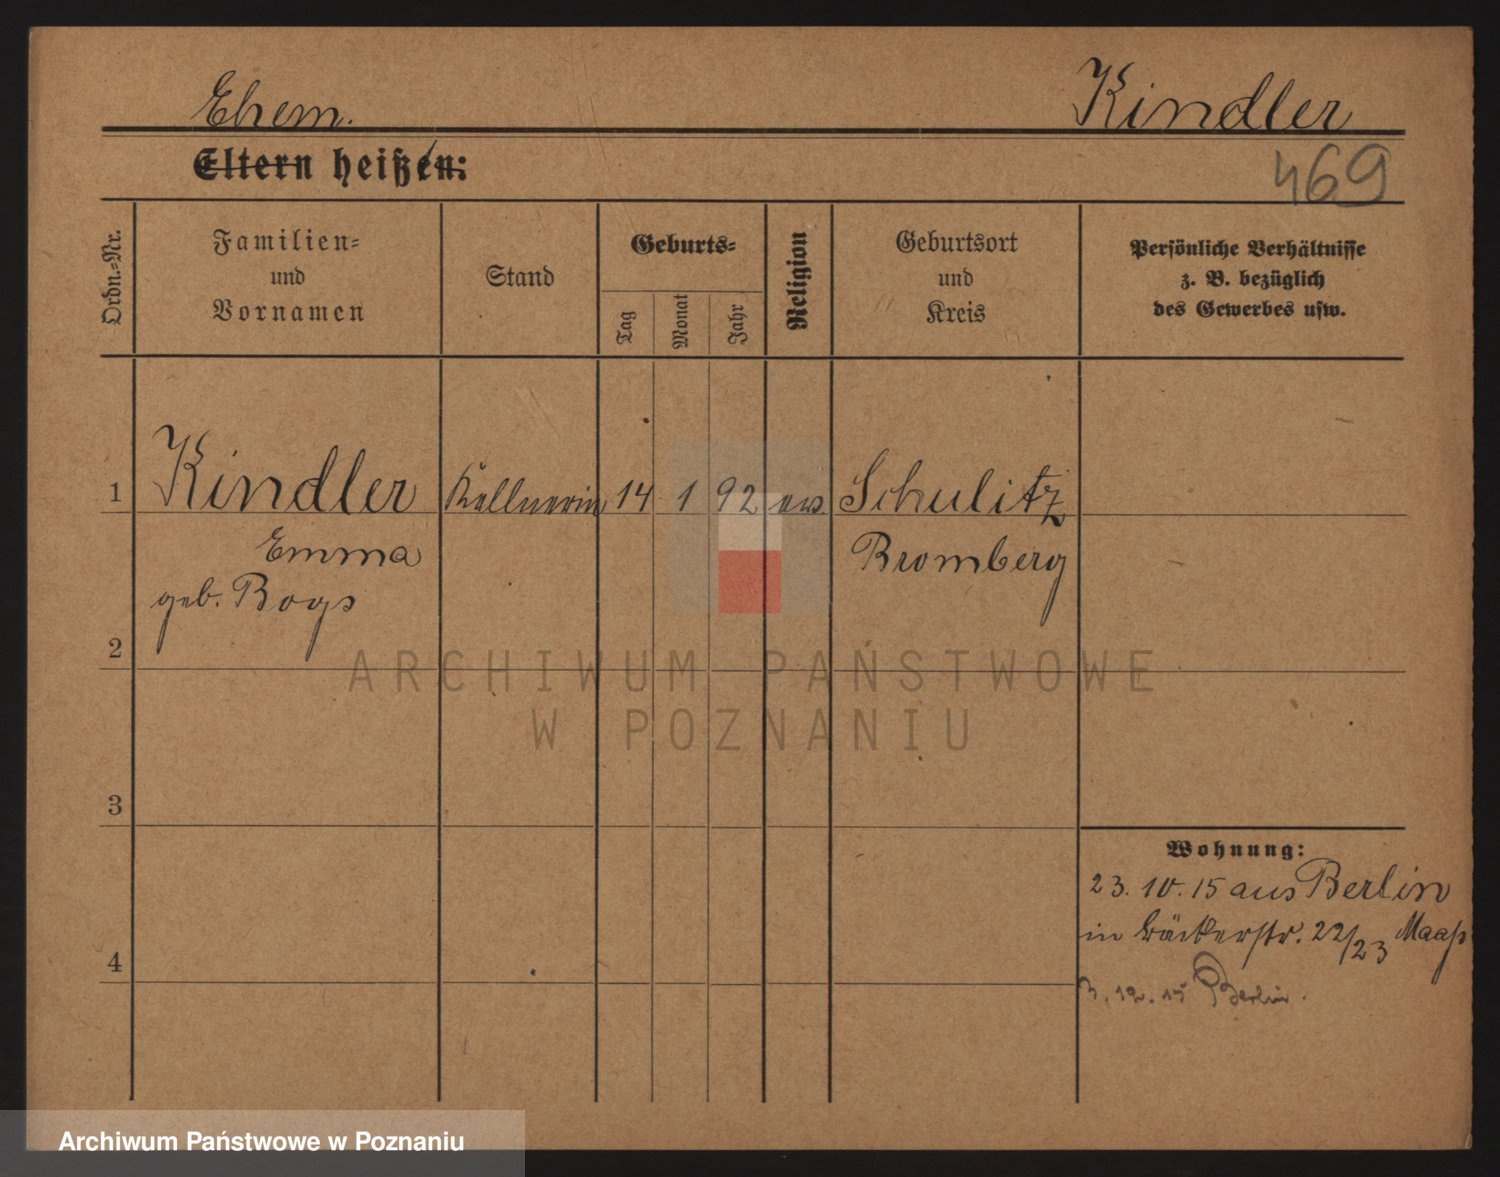 Ehem. Kindler
Eltern heißen:
469
Ordn.=Nr.
Familien=
und
Vornamen
Stand
Geburts=
Tag
Monat
Jahr
Religion
Geburtsort
und
Kreis
Persönliche Verhältnisse
z. B. bezüglich
des Gewerbes usw.
1 Kindler Kellnerin 14 1 92 ev Schulitz
Emma Bromberg
geb. Bogs
2
3
4
Wohnung:
23. 10. 15 aus Berlin
in Bäckerstr. 22/23 Maaß
3. 12. 15 Berlin.
ARCHIWUM PAŃSTWOWE
W POZNANIU
Archiwum Państwowe w Poznaniu